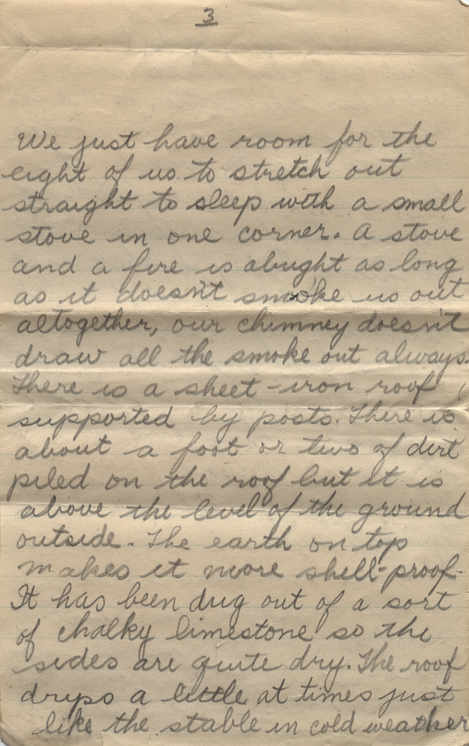 3
We just have room for the
eight of us to stretch out
straight to sleep with a small
stove in one corner. A stove
and a fire is alright as long
as it doesn't smoke us out
altogether, our chimney doesn't
draw all the smoke out always.
There is a sheet-iron roof
supported by posts. There is
about a foot or two of dirt
piled on the roof but it is
above the level of the ground
outside. The earth on top
makes it more shell-proof.
It has been dug out of a sort
of chalky limestone so the
sides are quite dry. The roof
drips a little at times just
like the stable in cold weather